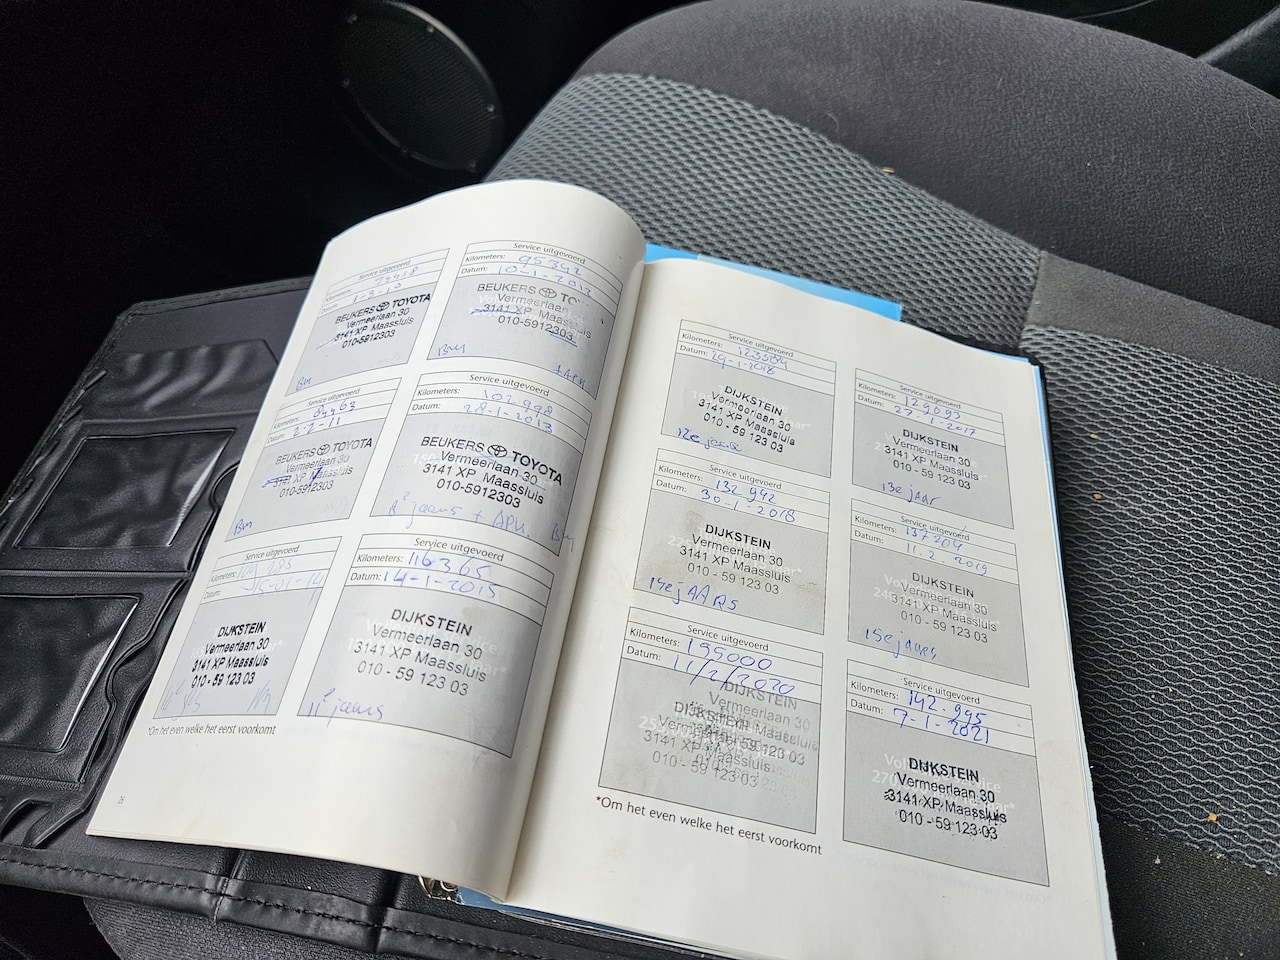 Service uitgevoerd
Kilometers:
1-3-10
BEUKERS TOYOTA
Vermeerlaan 30
3141 XP Maassluis
010-5912303
Bm
Service uitgevoerd
Kilometers: 95342
Datum: 10-1-2012
BEUKERS TO
Vermeerlaan
3141 XP Maassluis
010-5912303
Bm
+APK
Service uitgevoerd
Kilometers: 84463
Datum: 2-2-11
BEUKERS TOYOTA
Vermeerlaan 30
3141 XP Maassluis
010-5912303
Bm
Service uitgevoerd
Kilometers: 102998
Datum: 28-1-2013
BEUKERS TOYOTA
Vermeerlaan 30
3141 XP Maassluis
010-5912303
jaars + APK. Bm
Service uitgevoerd
Kilometers:
Datum: 15-01-14
DIJKSTEIN
Vermeerlaan 30
3141 XP Maassluis
010 - 59 123 03
Service uitgevoerd
Kilometers: 116365
Datum: 14-1-2015
DIJKSTEIN
Vermeerlaan 30
3141 XP Maassluis
010 - 59 123 03
11e jaars
*Om het even welke het eerst voorkomt
26
Service uitgevoerd
Kilometers:
Datum:
DIJKSTEIN
Vermeerlaan 30
3141 XP Maassluis
010 - 59 123 03
12e jaars
Service uitgevoerd
Kilometers: 129093
Datum: 27-1-2017
DIJKSTEIN
Vermeerlaan 30
3141 XP Maassluis
010 - 59 123 03
13e jaar
Service uitgevoerd
Kilometers: 132 942
Datum: 30-1-2018
DIJKSTEIN
Vermeerlaan 30
3141 XP Maassluis
010 - 59 123 03
14e jAARS
Service uitgevoerd
Kilometers: 137204
Datum: 11-2-2019
DIJKSTEIN
Vermeerlaan 30
3141 XP Maassluis
010 - 59 123 03
15e jaars
Service uitgevoerd
Kilometers: 195000
Datum: 11/2/2020
DIJKSTEIN
Vermeerlaan 30
3141 XP Maassluis
010 - 59 123 03
Service uitgevoerd
Kilometers: 142.995
Datum: 7-1-2021
DIJKSTEIN
Vermeerlaan 30
3141 XP Maassluis
010 - 59 123 03
*Om het even welke het eerst voorkomt